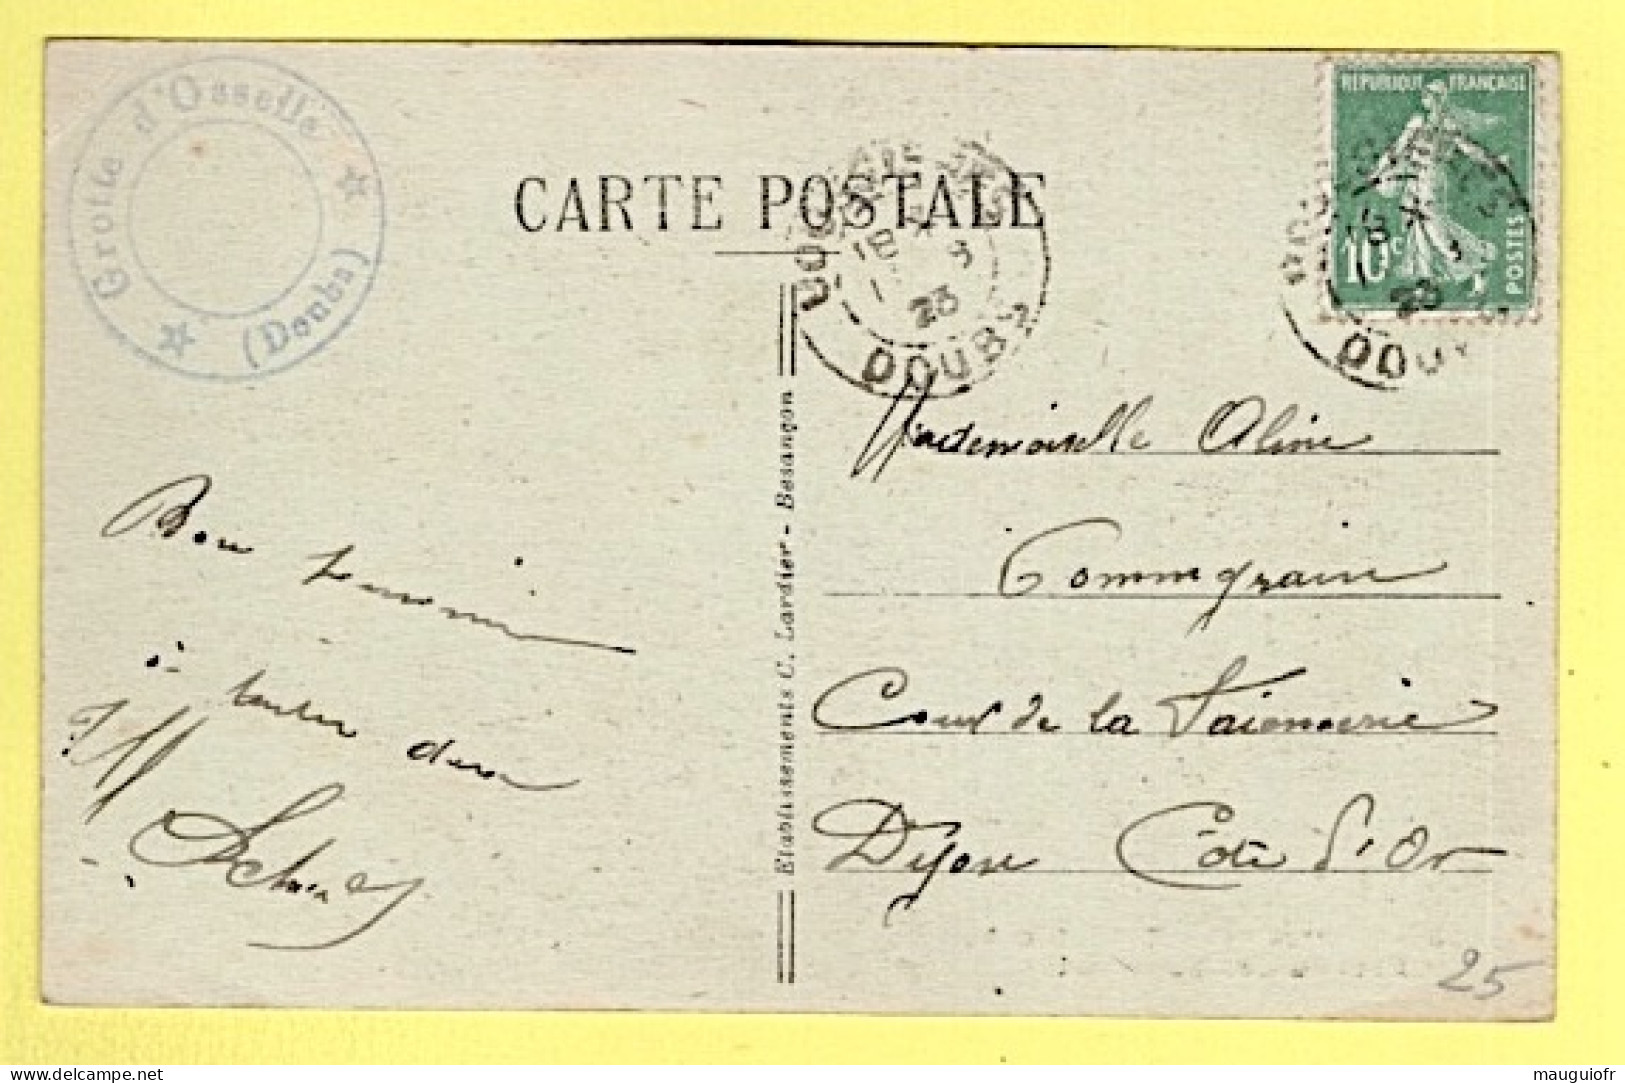 Grotte d'Osselle
(Doubs)
CARTE POSTALE
18 * 3
23
DOUBS
REPUBLIQUE FRANÇAISE
10c
POSTES
18 * 3
23
Etablissements C. Lardier - Besançon
Mademoiselle Aline
Commegrain
Cour de la
Dijon Côte d'Or
Bon souvenir
à toutes deux
25
mauguiofr